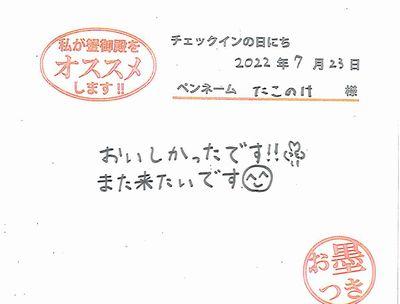 私が蟹御殿を
オススメ
します!!
チェックインの日にち
2022年7月23日
ペンネーム たこのけ 様
おいしかったです!!
また来たいです
お墨
つき